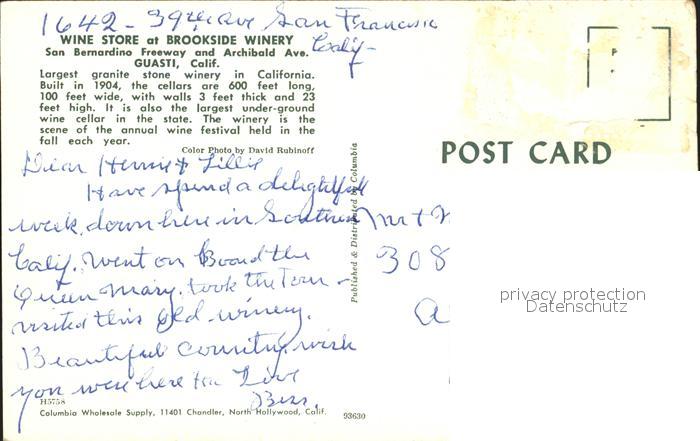 1642 - 39th ave San Francisco
Calif -
WINE STORE at BROOKSIDE WINERY
San Bernardino Freeway and Archibald Ave.
GUASTI, Calif.
Largest granite stone winery in California.
Built in 1904, the cellars are 600 feet long,
100 feet wide, with walls 3 feet thick and 23
feet high. It is also the largest under-ground
wine cellar in the state. The winery is the
scene of the annual wine festival held in the
fall each year.
Color Photo by David Rubinoff
POST CARD
Dear Hennie & Lillie
Have spend a delightful
week down here in Southern
Calif. Went on Board the
Queen Mary. took the Tour -
visited this old winery.
Beautiful Country wish
you were here too Love
Bess.
Published & Distributed by Columbia
Mr +
308
privacy protection
Datenschutz
H5758
Columbia Wholesale Supply, 11401 Chandler, North Hollywood, Calif. 93630